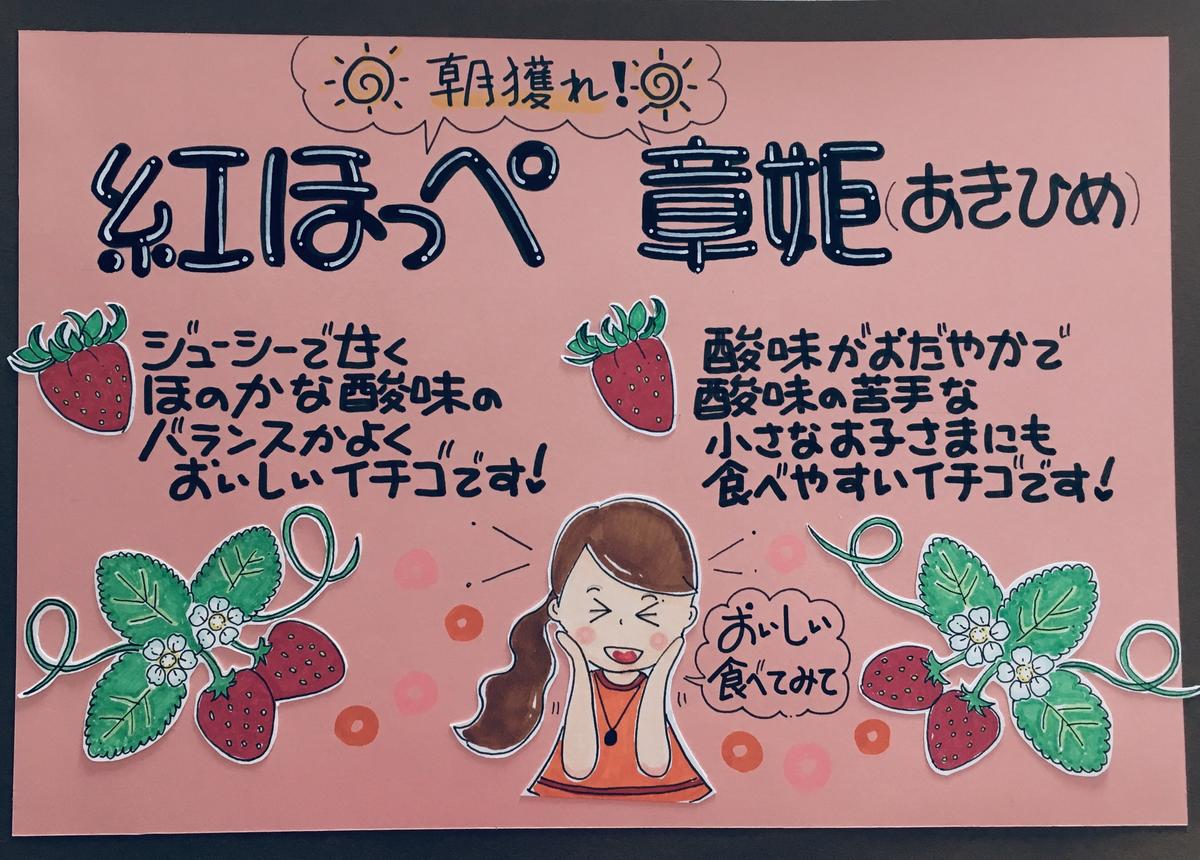 朝獲れ!
紅ほっぺ
章姫(あきひめ)
ジューシーで甘く
ほのかな酸味の
バランスがよく
おいしいイチゴです!
酸味がおだやかで
酸味の苦手な
小さなお子さまにも
食べやすいイチゴです!
おいしい
食べてみて